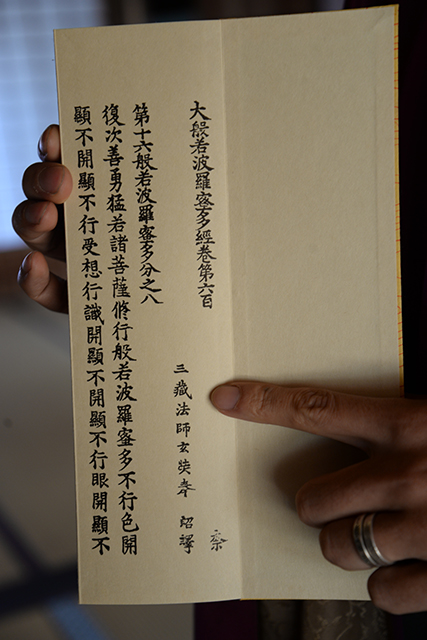 大般若波羅蜜多經卷第六百
柰
三藏法師玄奘奉　詔譯
第十六般若波羅蜜多分之八
復次善勇猛若諸菩薩脩行般若波羅蜜多不行色開
顯不開顯不行受想行識開顯不開顯不行眼開顯不